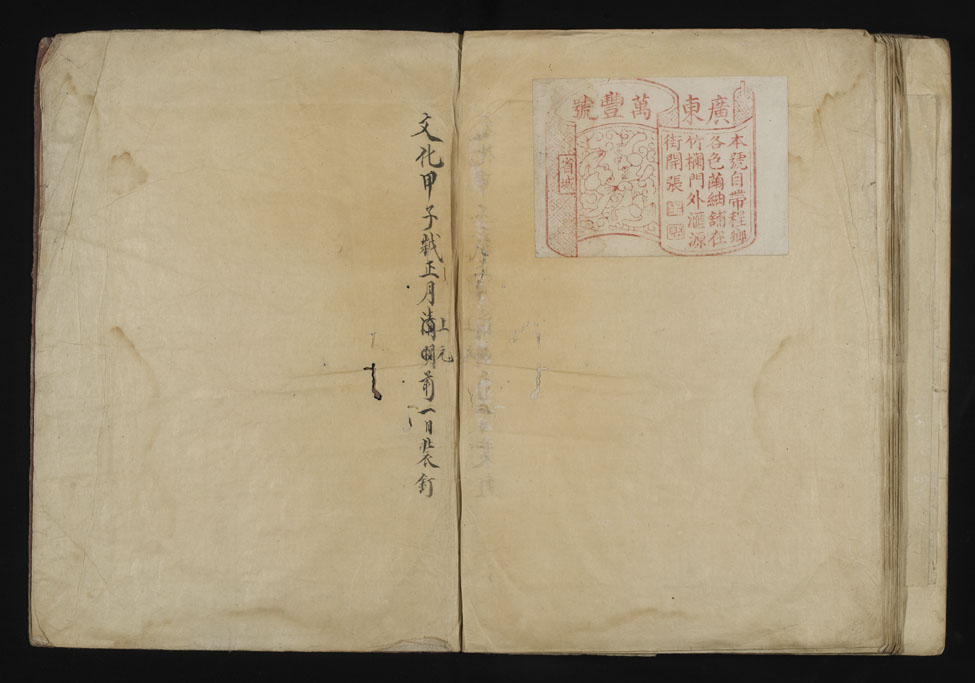 廣東
萬豐號
本號自帶程鄉
各色繭紬舖在
竹欄門外滙源
街開張
省城
文化甲子載正月清明前一日装釘
上元